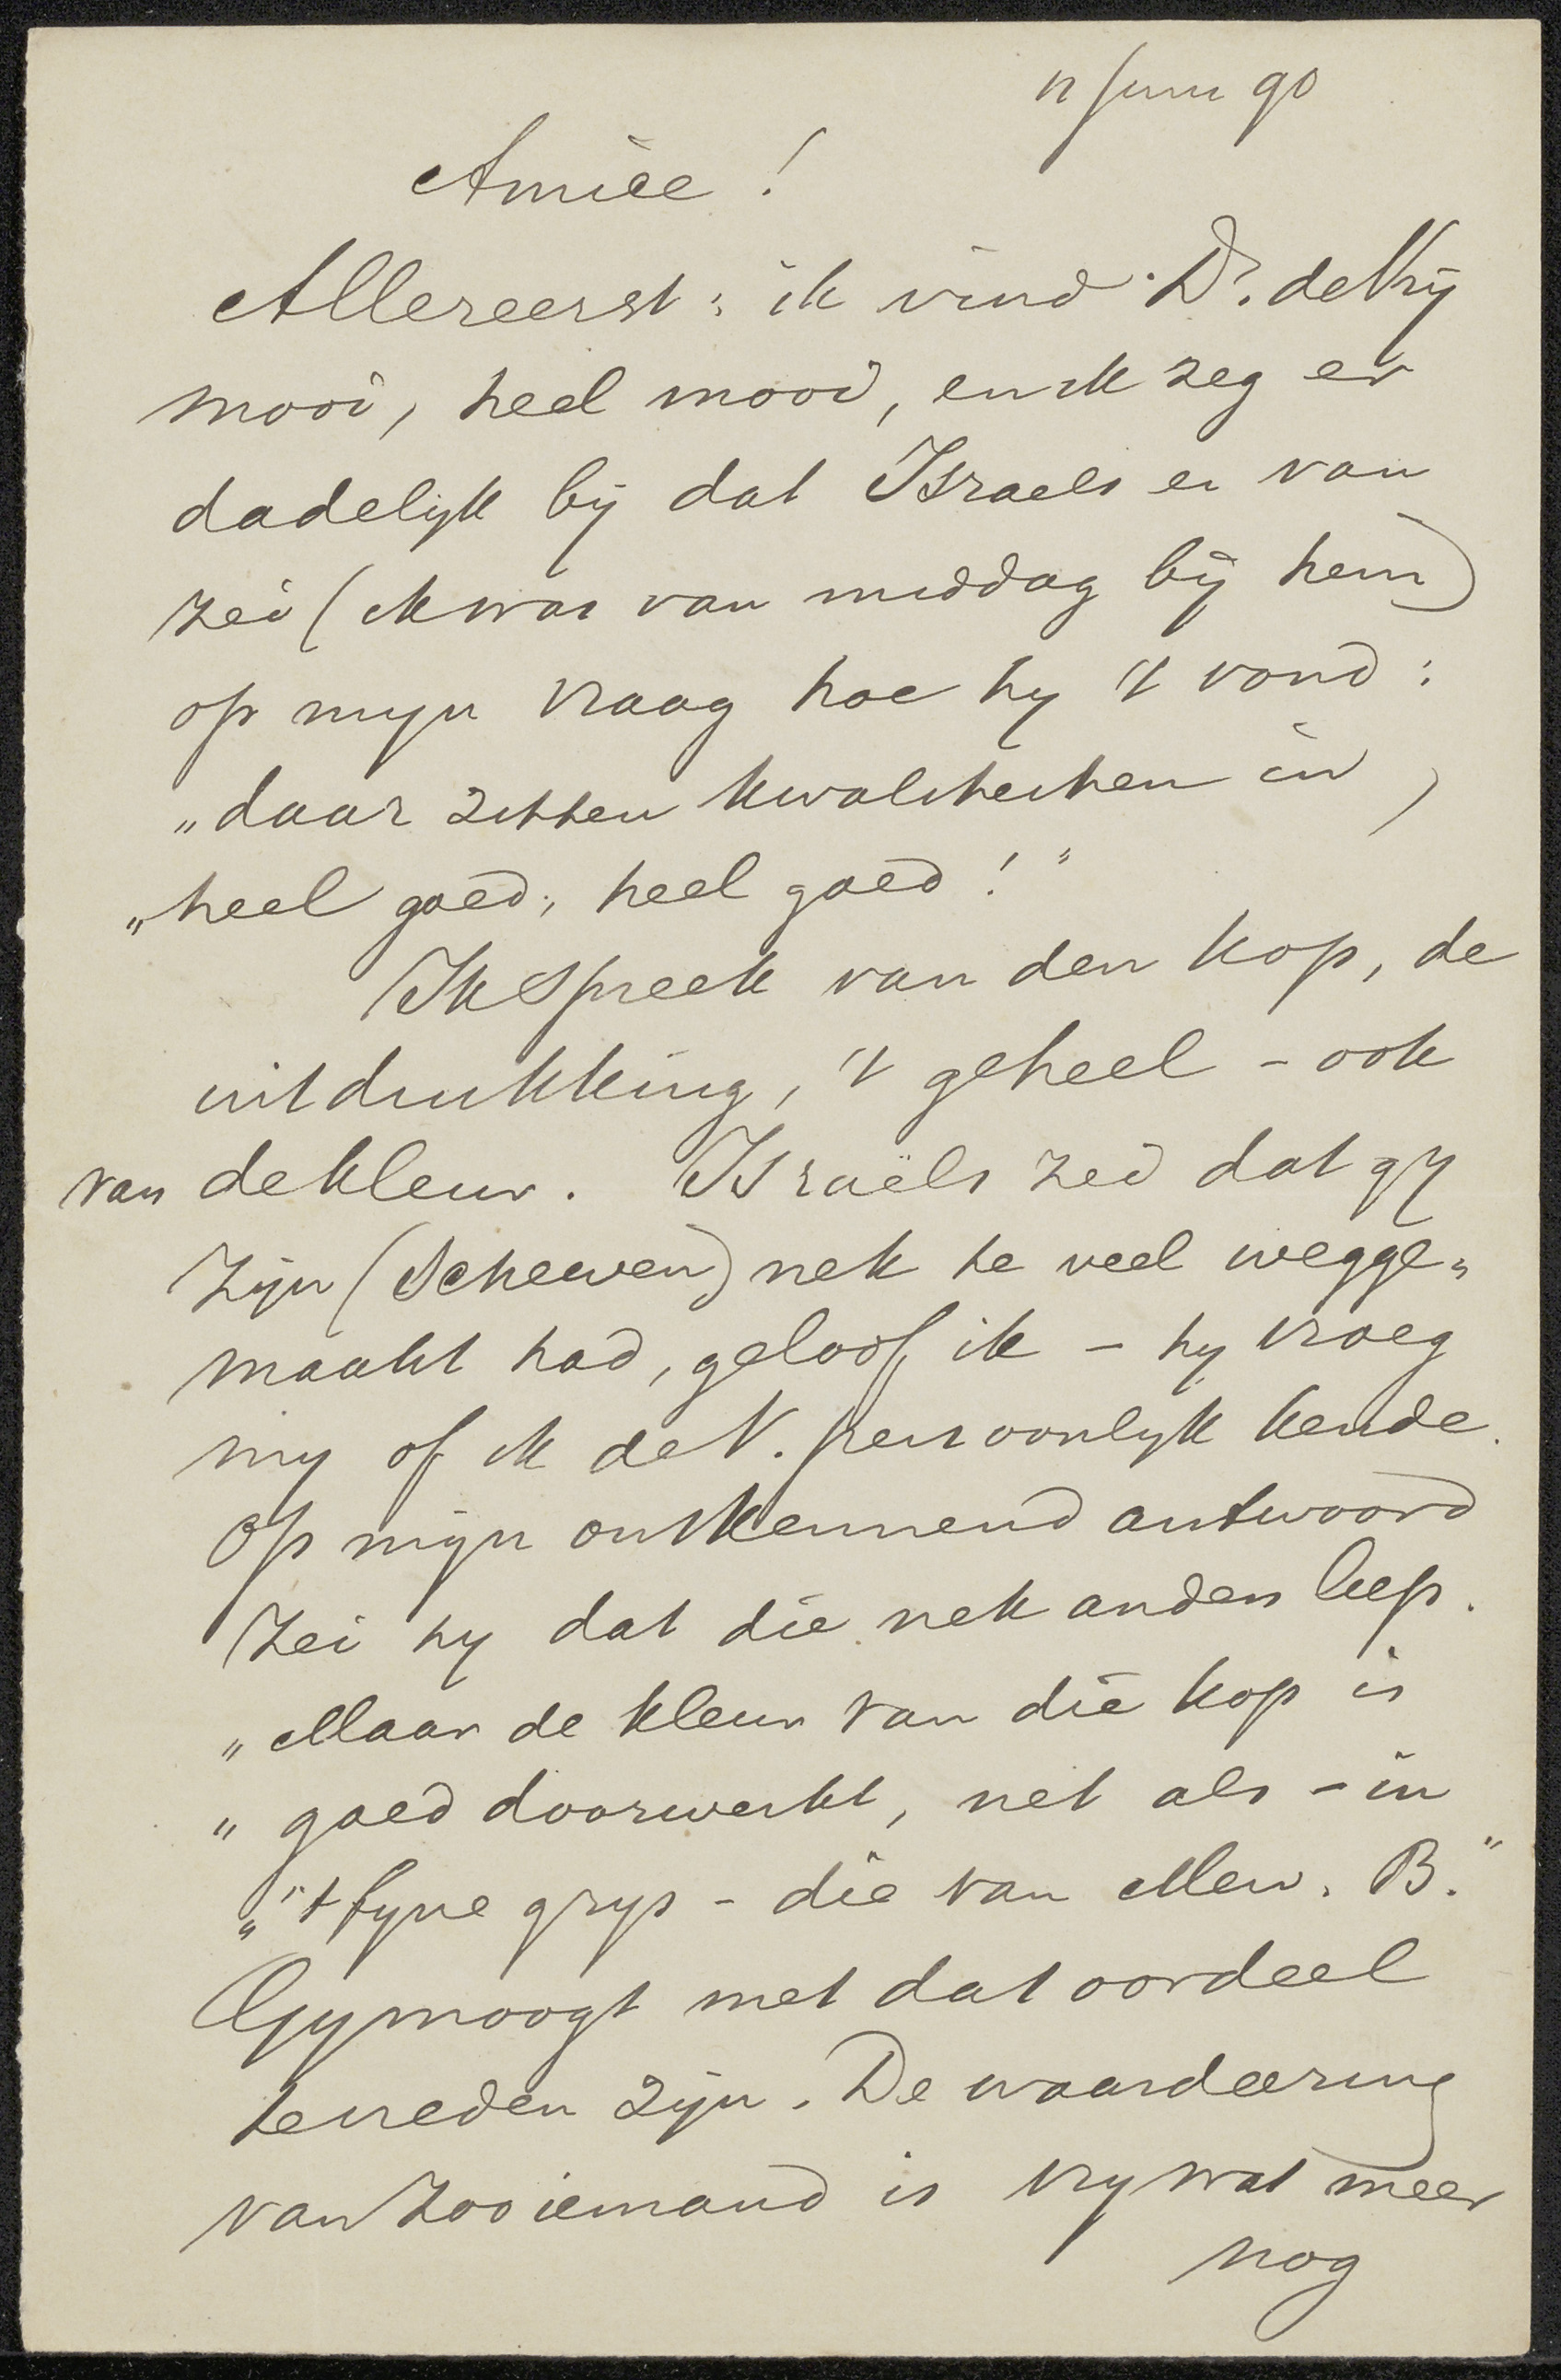 Juni 90
Amice!
Allereerst: ik vind Dr. de Vrij
mooi, heel mooi, en ik zeg er
dadelijk bij dat Israels er van
zei (ik was van middag bij hem)
op mijn vraag hoe hy 't vond:
„daar zitten kwaliteiten in,
„heel goed, heel goed!"
Ik spreek van den kop, de
uitdrukking, 't geheel – ook
van de kleur. Israëls zei dat gy
zijn (Scheeven) nek te veel wegge„
maakt had, geloof ik – hy vroeg
my of ik de V. persoonlyk kende.
Op mijn ontkennend antwoord
zei hy dat die nek anders liep.
„Maar de kleur van die kop is
„goed doorwerkt, net als – in
„'t fyne grys – die van Mew. B."
Gy moogt met dat oordeel
tevreden zijn. De waardeering
van zoo iemand is vry wat meer
nog